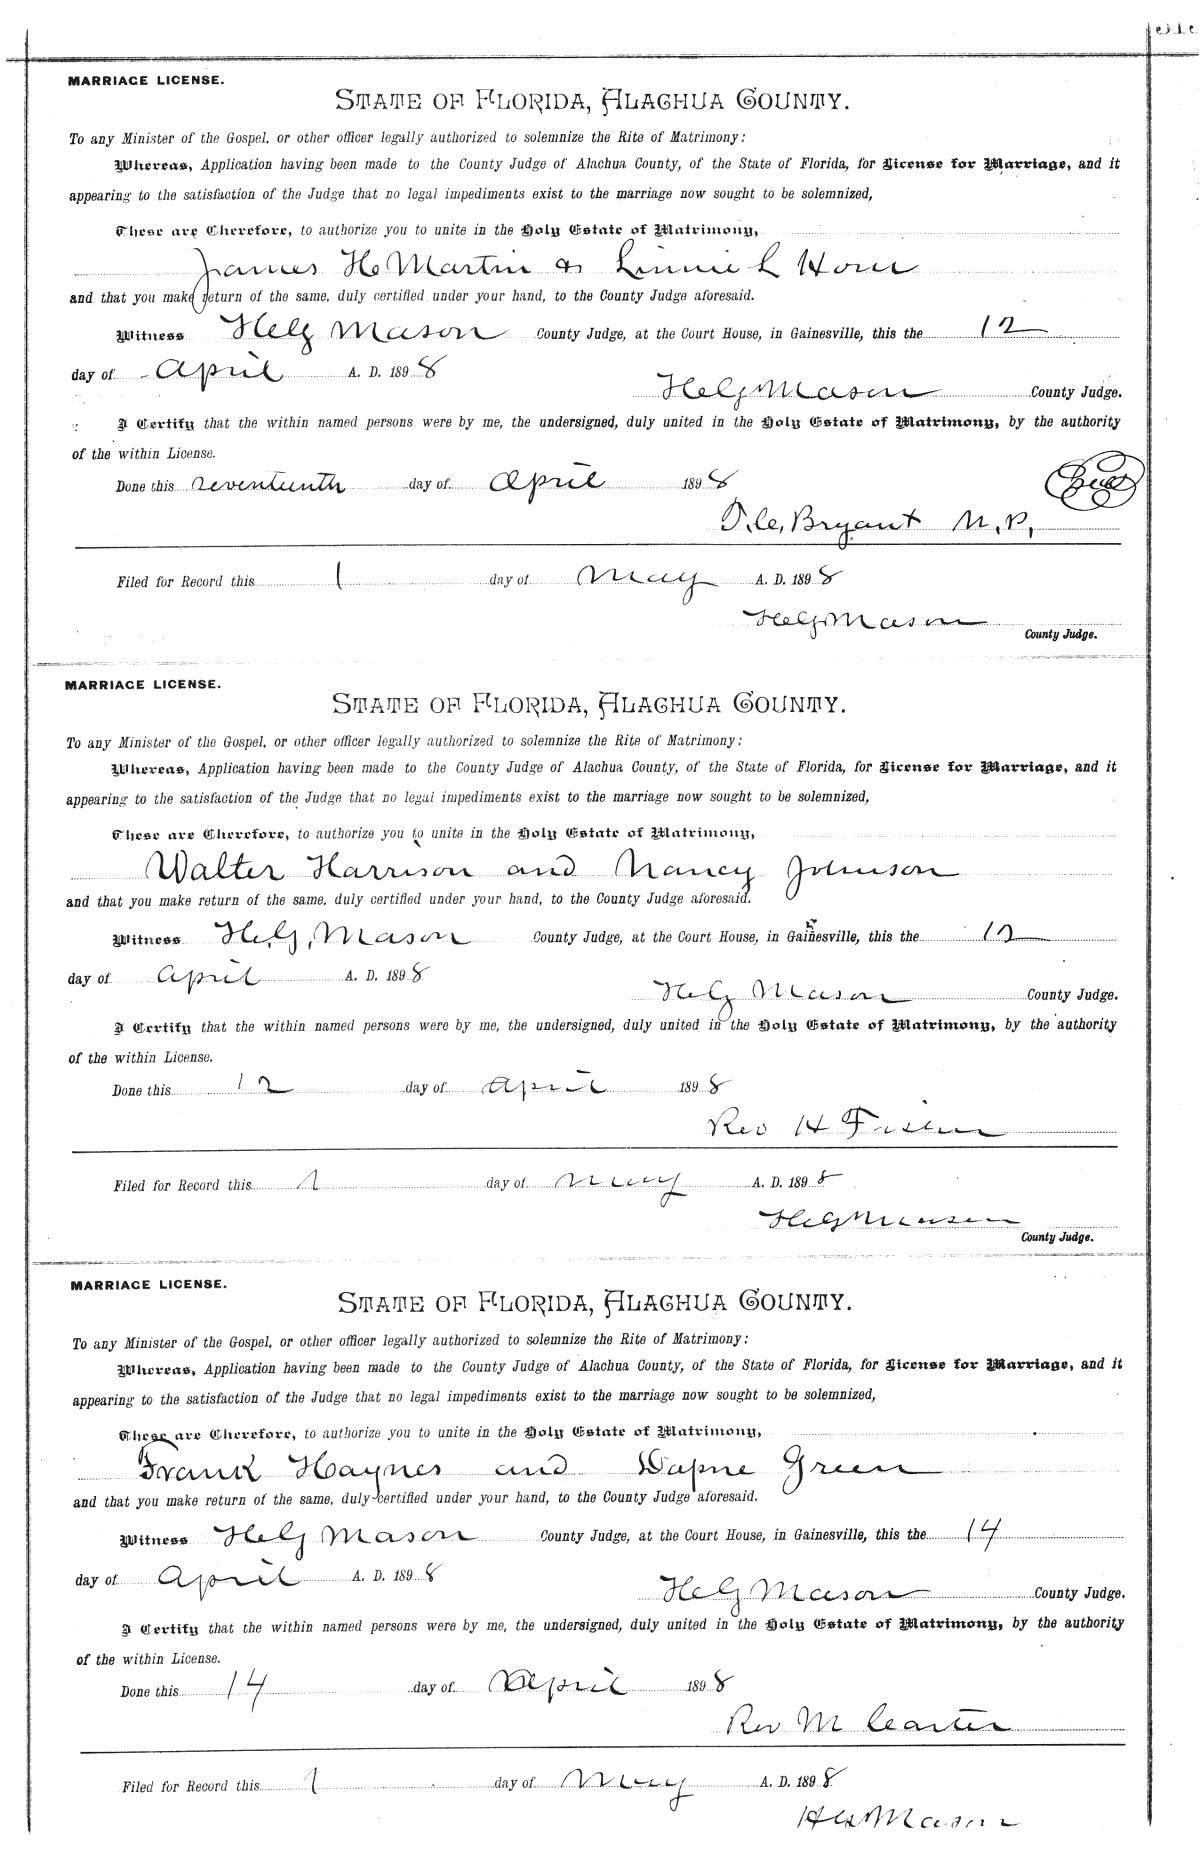 MARRIAGE LICENSE.
STATE OF FLORIDA, ALACHUA COUNTY.
To any Minister of the Gospel, or other officer legally authorized to solemnize the Rite of Matrimony:
Whereas, Application having been made to the County Judge of Alachua County, of the State of Florida, for License for Marriage, and it
appearing to the satisfaction of the Judge that no legal impediments exist to the marriage now sought to be solemnized,
These are Therefore, to authorize you to unite in the Holy Estate of Matrimony,
James H Martin & Linnie L
and that you make return of the same, duly certified under your hand, to the County Judge aforesaid.
Witness H. G. Mason County Judge, at the Court House, in Gainesville, this the 12
day of April A. D. 1898
H. G. Mason County Judge.
I Certify that the within named persons were by me, the undersigned, duly united in the Holy Estate of Matrimony, by the authority
of the within License.
Done this seventeenth day of April 1898
Bryant N. P. Seal
Filed for Record this 1 day of May A. D. 1898
H. G. Mason
County Judge.
MARRIAGE LICENSE.
STATE OF FLORIDA, ALACHUA COUNTY.
To any Minister of the Gospel, or other officer legally authorized to solemnize the Rite of Matrimony:
Whereas, Application having been made to the County Judge of Alachua County, of the State of Florida, for License for Marriage, and it
appearing to the satisfaction of the Judge that no legal impediments exist to the marriage now sought to be solemnized,
These are Therefore, to authorize you to unite in the Holy Estate of Matrimony,
Walter Harrison and Nancy Johnson
and that you make return of the same, duly certified under your hand, to the County Judge aforesaid.
Witness H. G. Mason County Judge, at the Court House, in Gainesville, this the 12
day of April A. D. 1898
H. G. Mason County Judge.
I Certify that the within named persons were by me, the undersigned, duly united in the Holy Estate of Matrimony, by the authority
of the within License.
Done this 12 day of April 1898
Rev H
Filed for Record this 1 day of May A. D. 1898
H. G. Mason
County Judge.
MARRIAGE LICENSE.
STATE OF FLORIDA, ALACHUA COUNTY.
To any Minister of the Gospel, or other officer legally authorized to solemnize the Rite of Matrimony:
Whereas, Application having been made to the County Judge of Alachua County, of the State of Florida, for License for Marriage, and it
appearing to the satisfaction of the Judge that no legal impediments exist to the marriage now sought to be solemnized,
These are Therefore, to authorize you to unite in the Holy Estate of Matrimony,
Frank Haynes and Dapne Green
and that you make return of the same, duly certified under your hand, to the County Judge aforesaid.
Witness H. G. Mason County Judge, at the Court House, in Gainesville, this the 14
day of April A. D. 1898
H. G. Mason County Judge.
I Certify that the within named persons were by me, the undersigned, duly united in the Holy Estate of Matrimony, by the authority
of the within License.
Done this 14 day of April 1898
Rev M Carter
Filed for Record this 1 day of May A. D. 1898
H. G. Mason